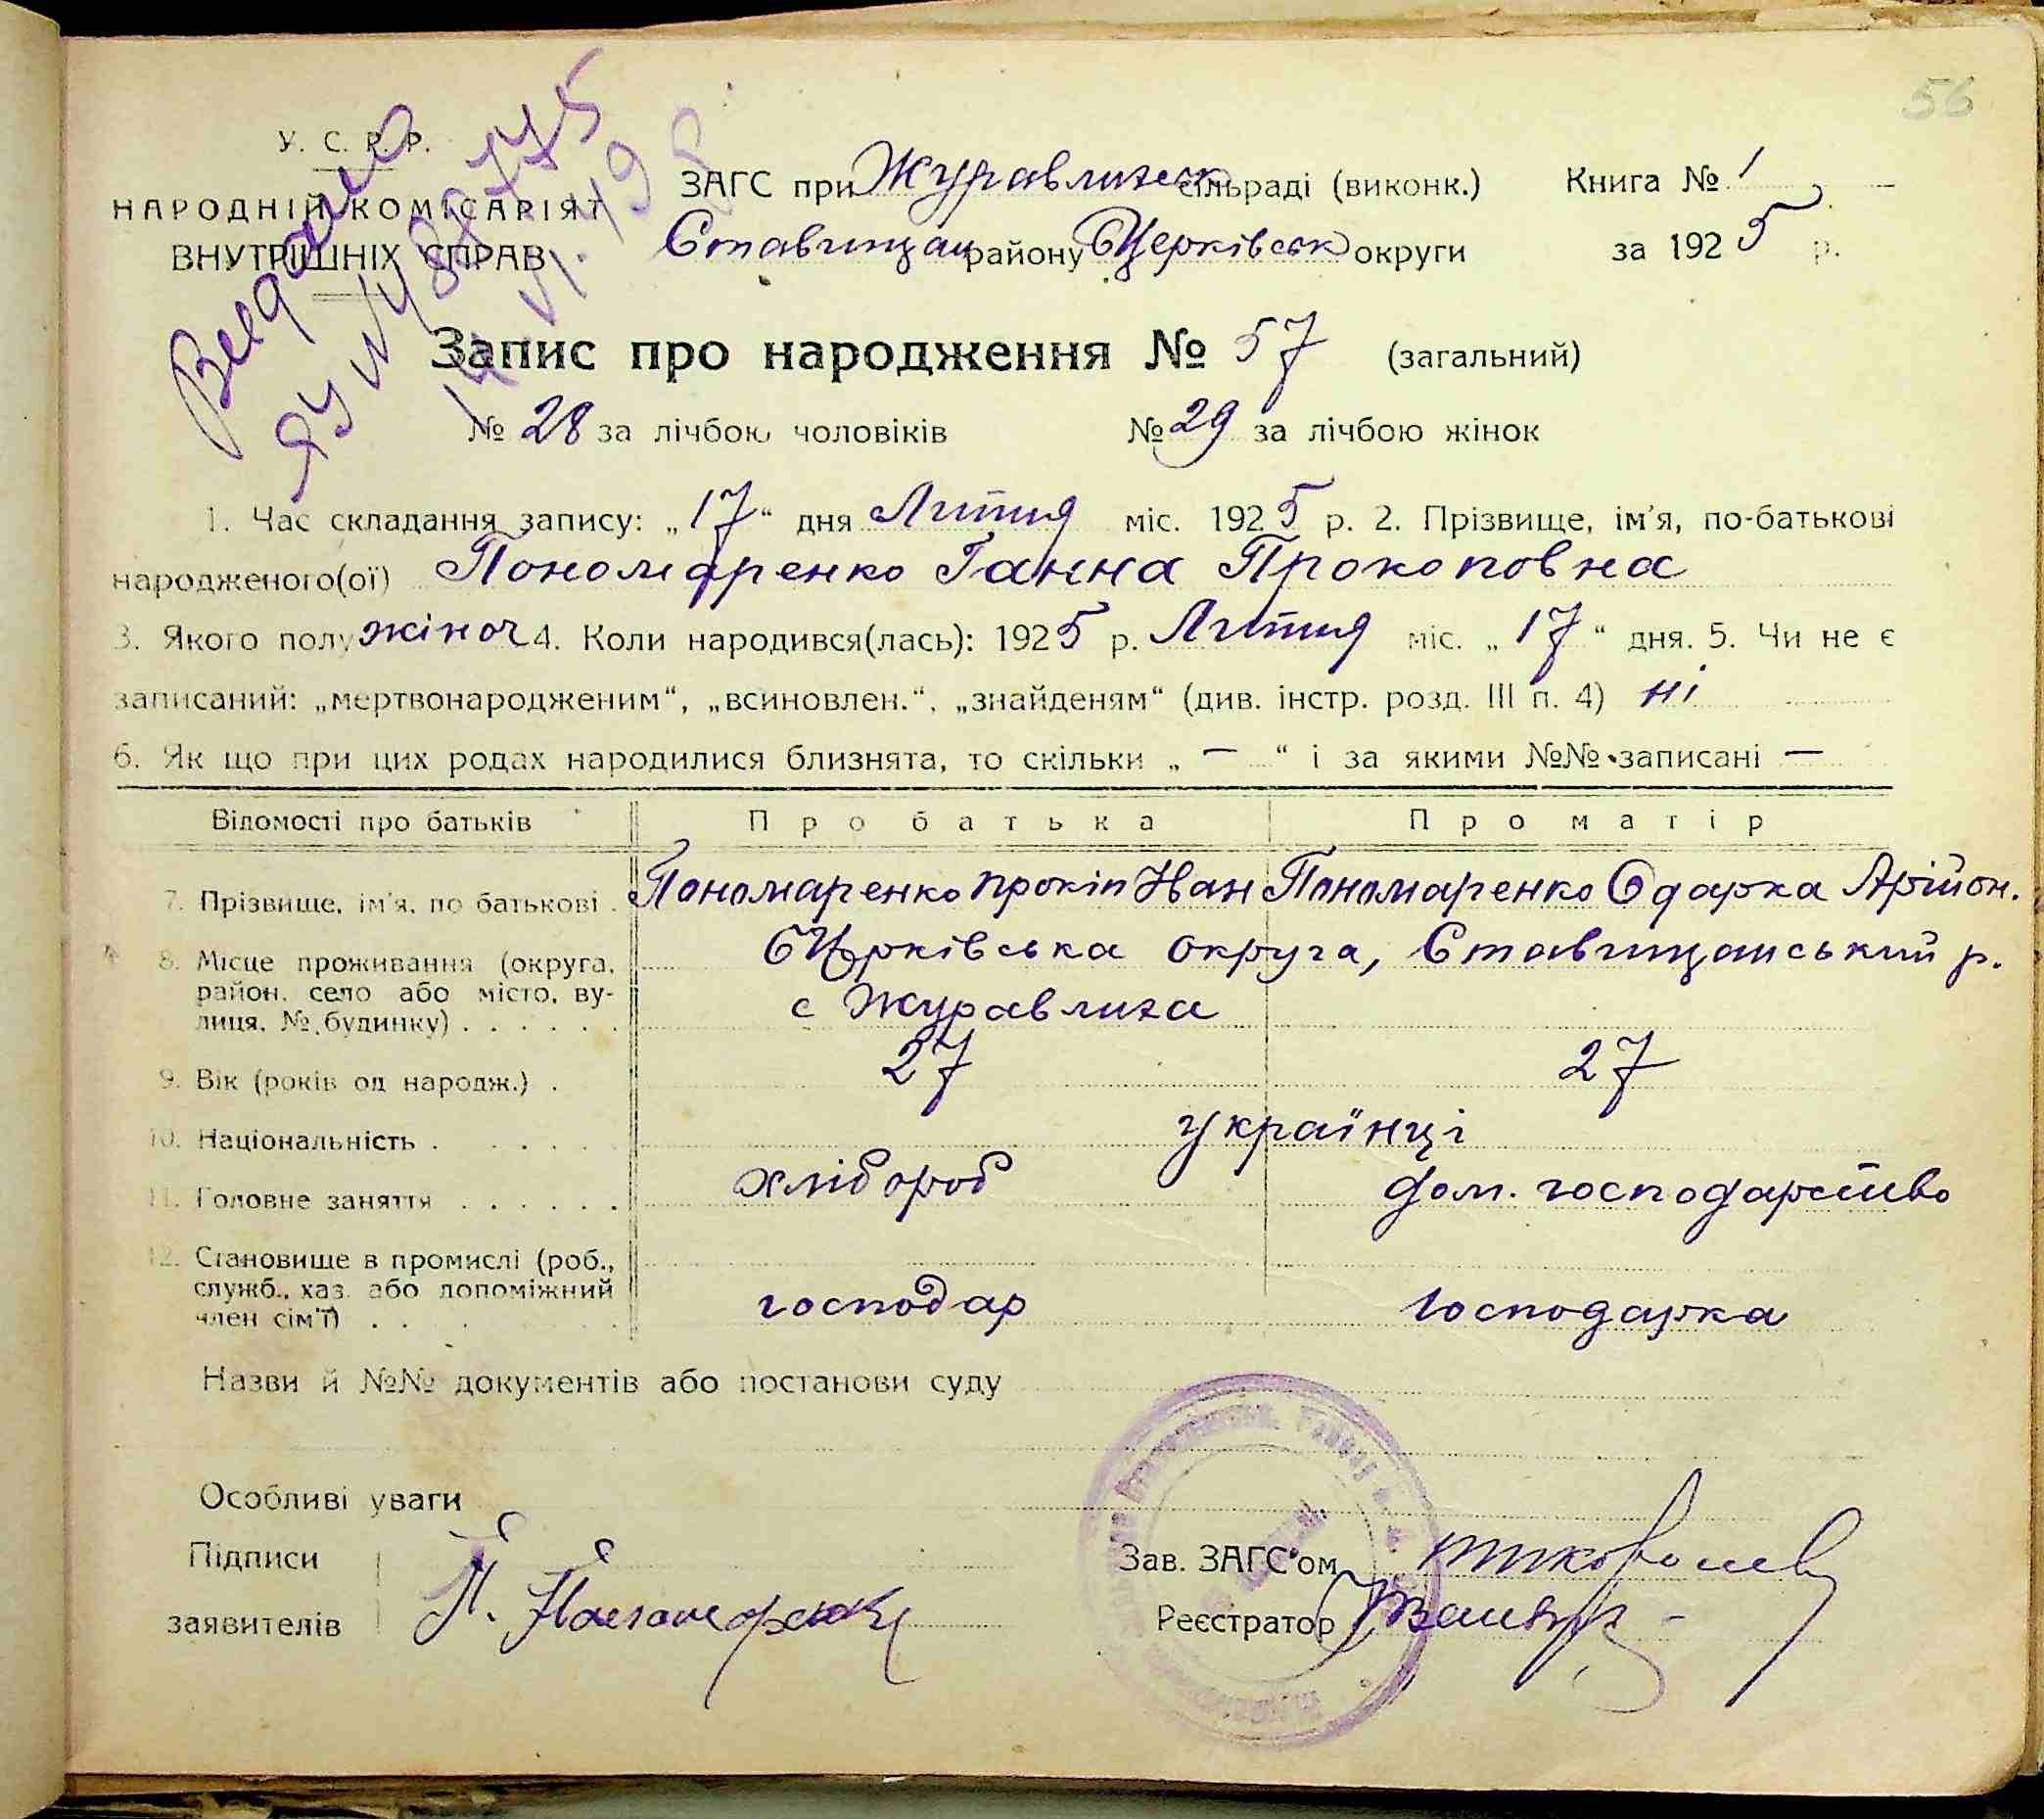 56
У. С. Р. Р.
НАРОДНІЙ КОМІСАРІЯТ
ВНУТРІШНІХ СПРАВ
ЗАГС при Журавлиськ сільраді (виконк.)
Книга № 1
Ставищан району БЦерківськ округи
за 1925 р.
Запис про народження № 57 (загальний)
№ 28 за лічбою чоловіків № 29 за лічбою жінок
1. Час складання запису: „17“ дня Лютня міс. 1925 р. 2. Прізвище, ім'я, по-батькові
народженого(ої) Пономаренко Ганна Прокоповна
3. Якого полу жіноч 4. Коли народився(лась): 1925 р. Лютня міс. „17“ дня. 5. Чи не є
записаний: „мертвонародженим“, „всиновлен.“, „знайденям“ (див. інстр. розд. III п. 4) ні
6. Як що при цих родах народилися близнята, то скільки „ — “ і за якими №№ записані —
Відомості про батьків Про батька Про матір
7. Прізвище, ім'я, по батькові . Пономаренко Прокіп Іван Пономаренко Одарка
8. Місце проживання (округа, район, село або місто, вулиця, № будинку) . . . . . . БЦрківська округа, Ставищанський р.
с Журавлиха
9. Вік (років од народж.) . 27 27
10. Національність . . . . . . українці
11. Головне заняття . . . . . . хлібороб дом. господарство
12. Становище в промислі (роб.,
служб., хаз. або допоміжний
член сім'ї) . . . господар господарка
Назви й №№ документів або постанови суду
Особливі уваги
Підписи
заявителів П. Пономаренко
Зав. ЗАГС'ом
Реєстратор